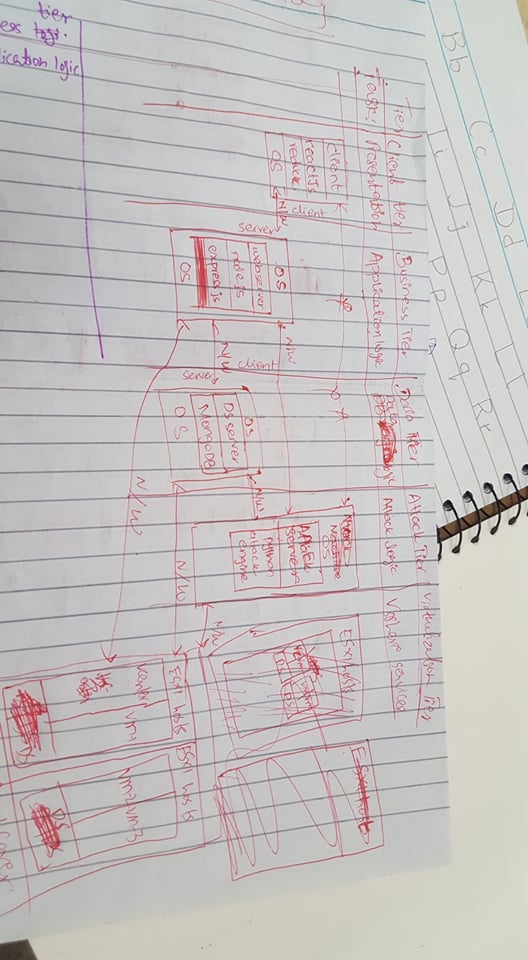 Bb Cc Dd
Ii Jj Kk Ll
Pp Qq Rr
Tier Client tier Business Tier Data Tier Attack Tier Virtualization Tier
Task: Presentation Application logic Data logic Attack logic services
client
reactjs
redux
OS
N/W
client
server
OS
webserver
nodejs
expressjs
OS
N/W
N/W
client
server
OS
DS server
MongoDB
OS
N/W
Attack
Machine
OS
Attack
server
python
attack
engine
N/W
N/W
N/W
ESXi hosts
ESXi host
ESXi hosts
vcenter
vm-1
ESXi hosts
vm-2 vm-3
OS
tier
ication logic